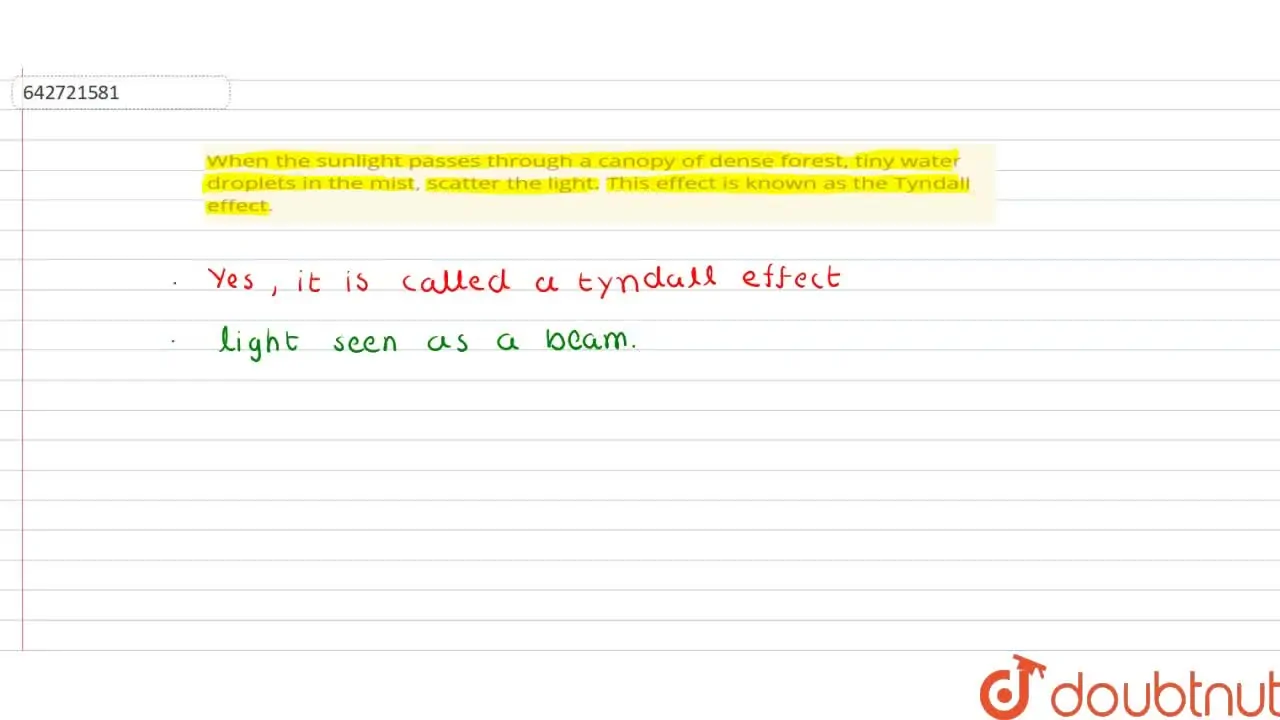 642721581
When the sunlight passes through a canopy of dense forest, tiny water
droplets in the mist, scatter the light. This effect is known as the Tyndall
effect.
Yes, it is called a tyndall effect
light seen as a beam.
doubtnut